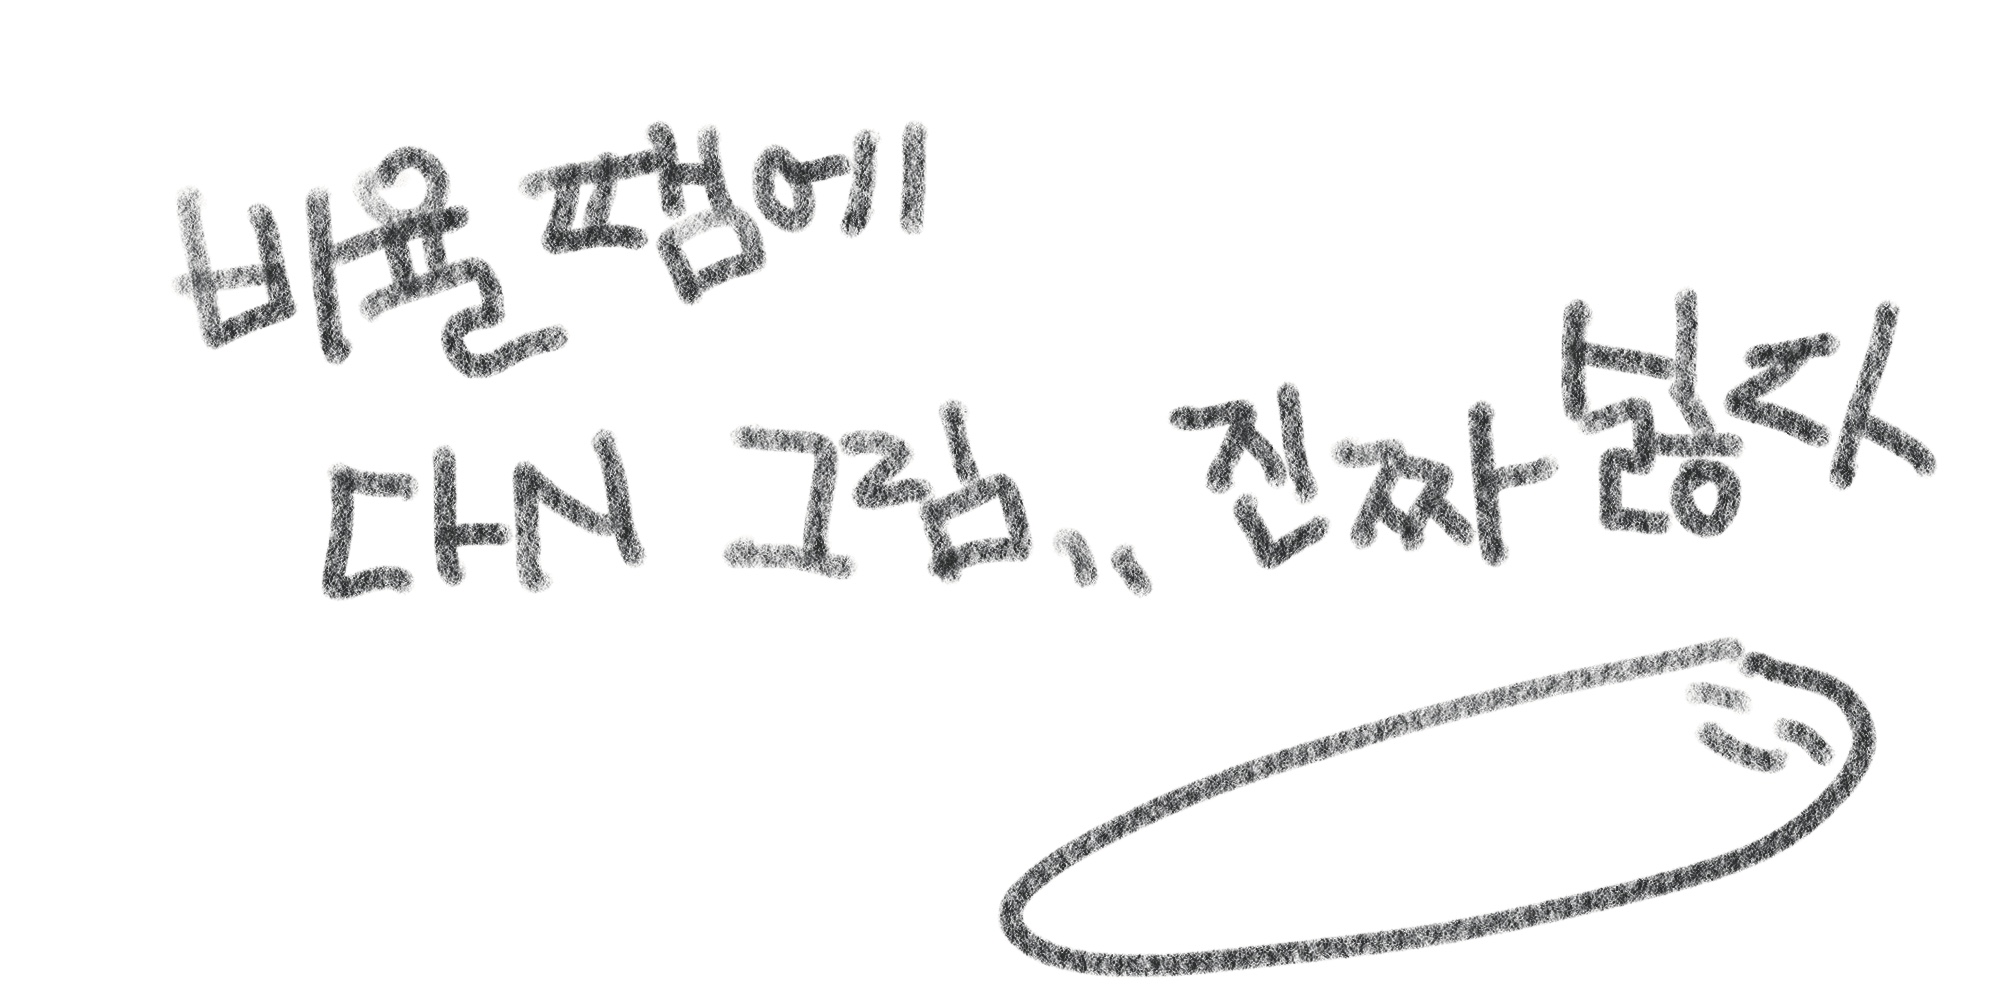 비율 땜에
다시 그림,, 진짜 싫다